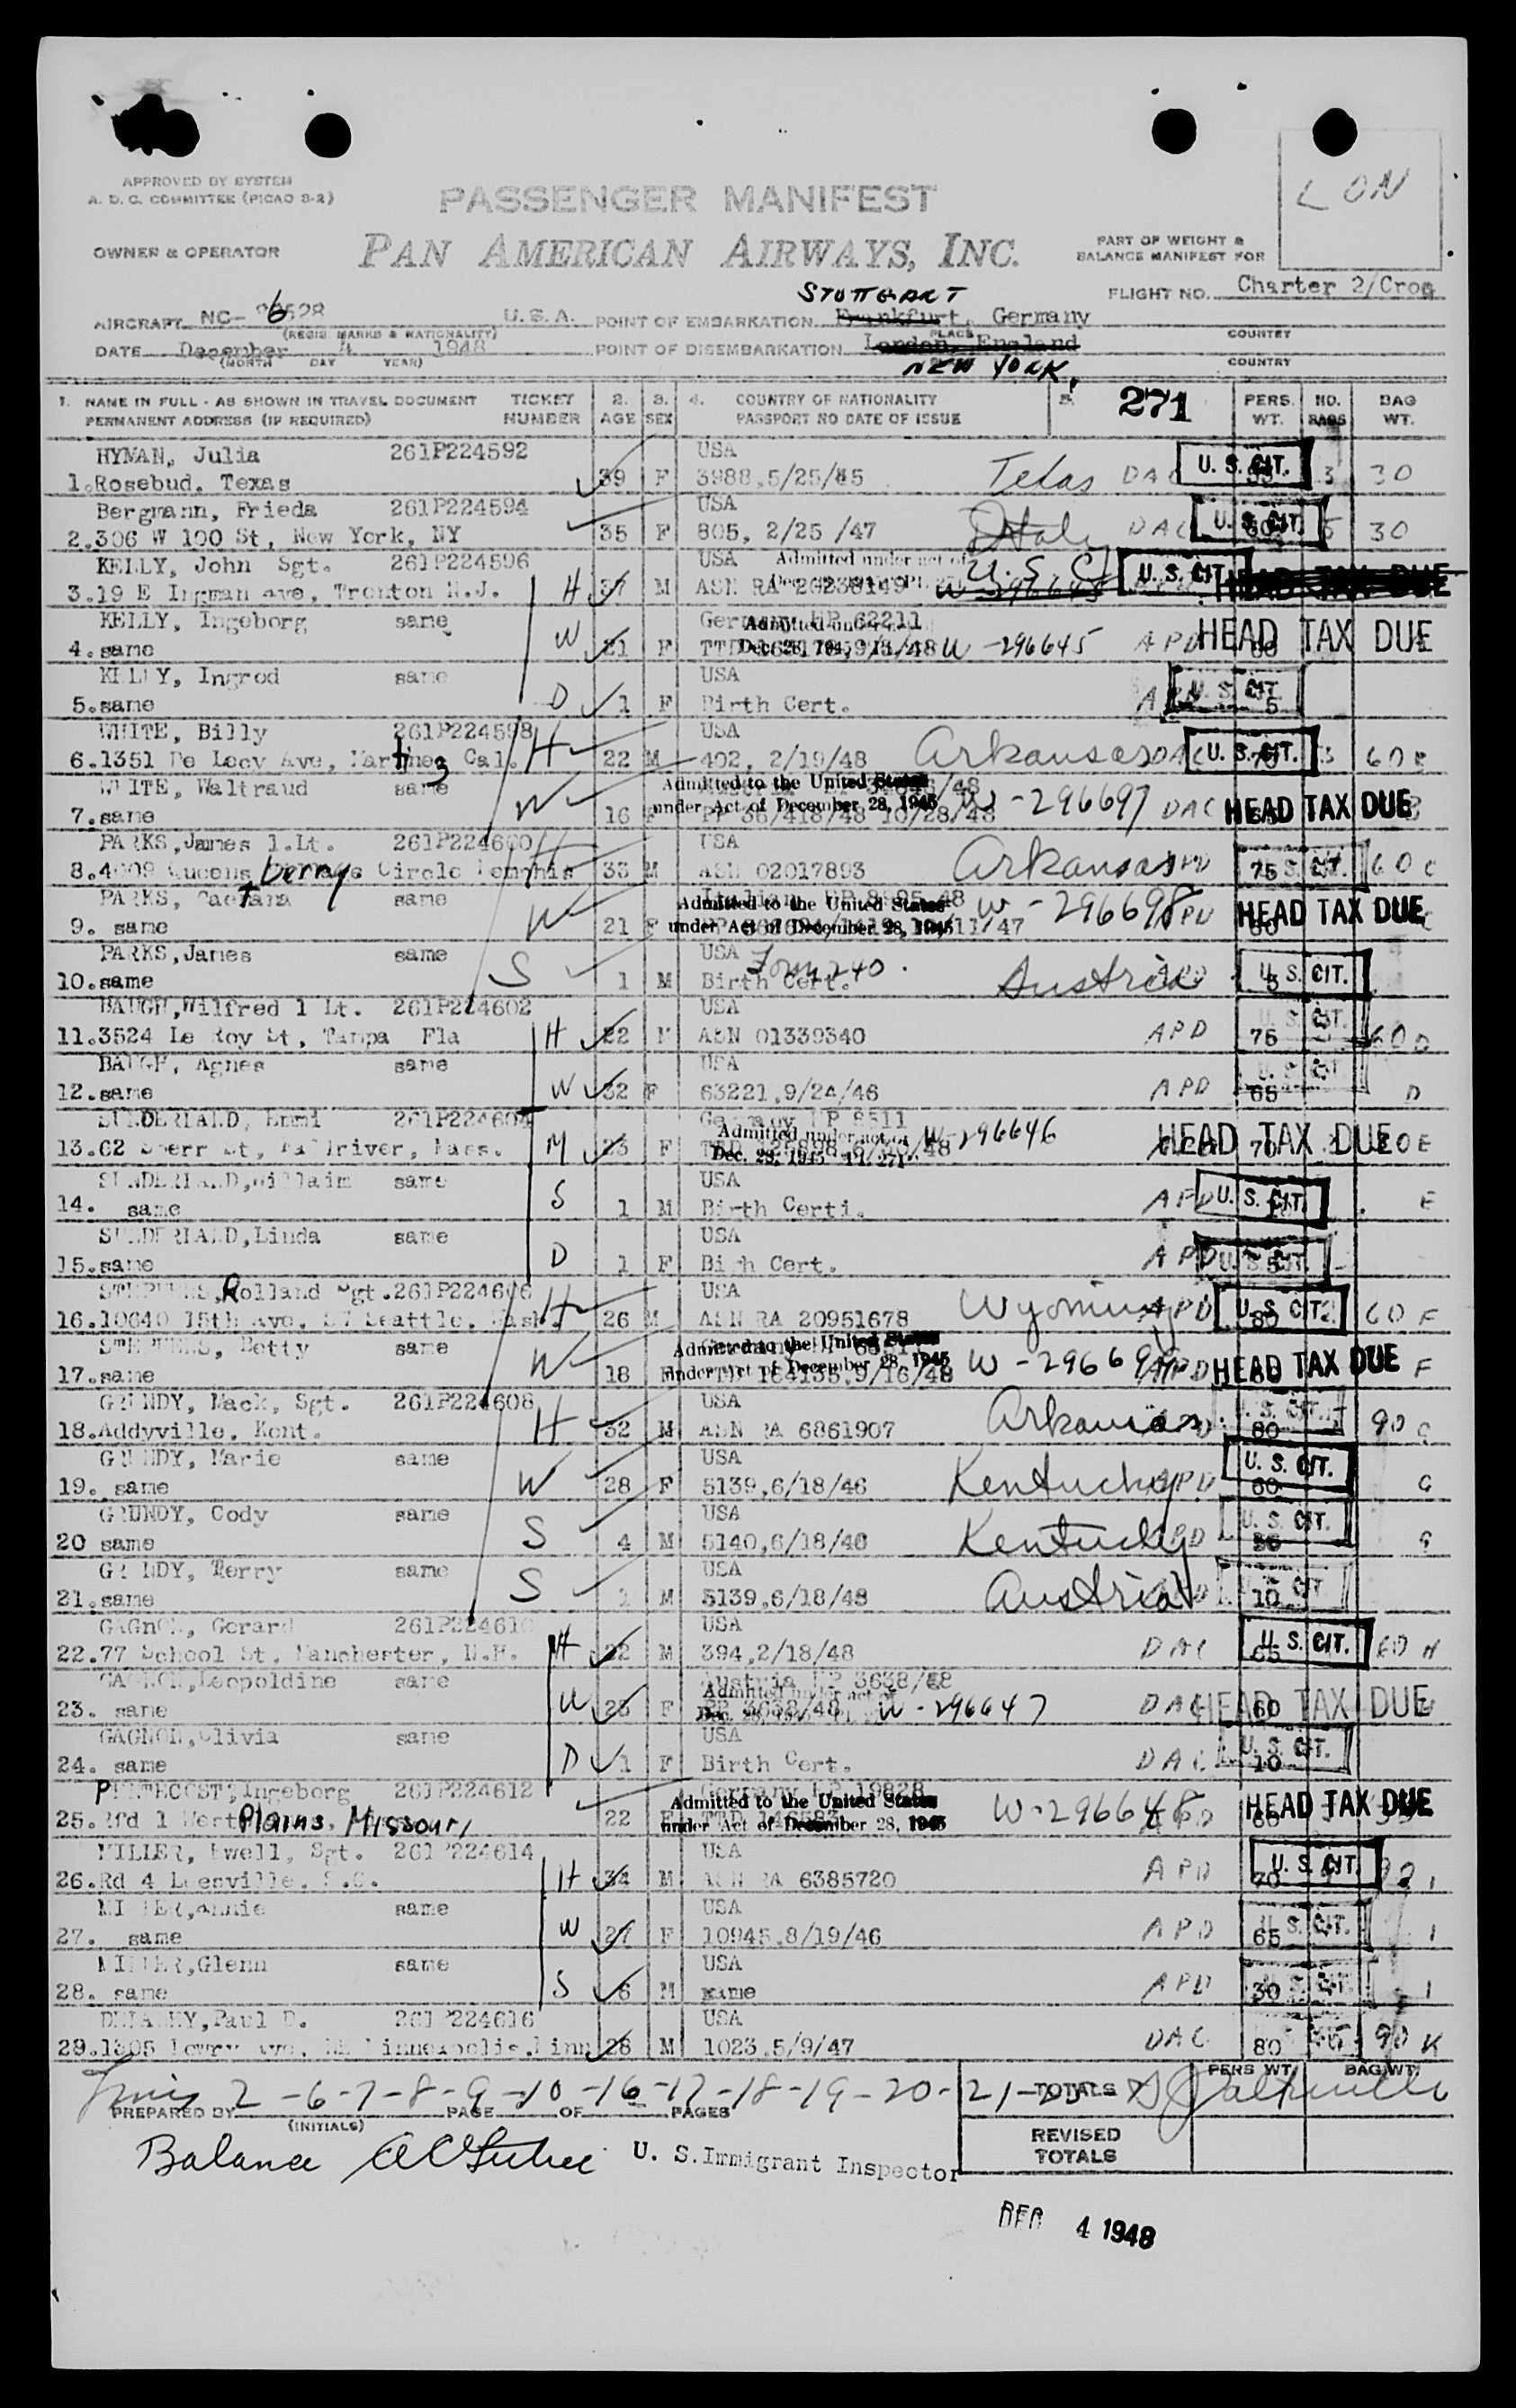 APPROVED BY SYSTEM
A. D. C. COMMITTEE (PICAO S-2)
PASSENGER MANIFEST
LON
OWNER & OPERATOR
PAN AMERICAN AIRWAYS, INC.
PART OF WEIGHT &
BALANCE MANIFEST FOR
FLIGHT NO. Charter 2/Crog
STUTTGART
AIRCRAFT NC- 6528 U.S.A. POINT OF EMBARKATION Frankfurt, Germany
(REGIS MARKS & NATIONALITY) PLACE COUNTRY
DATE December 4 1948 POINT OF DISEMBARKATION London, England
(MONTH DAY YEAR) COUNTRY
NEW YORK,
1. NAME IN FULL - AS SHOWN IN TRAVEL DOCUMENT TICKET 2. 3. 4. COUNTRY OF NATIONALITY 5. 271 PERS. NO. BAG
PERMANENT ADDRESS (IF REQUIRED) NUMBER AGE SEX PASSPORT NO DATE OF ISSUE WT. BAGS WT.
HYMAN, Julia 261P224592 USA
1. Rosebud, Texas 39 F 3988,5/25/45 Texas DAC U. S. CIT. 3 30
Bergmann, Frieda 261P224594 USA
2. 306 W 100 St, New York, NY 35 F 805, 2/25 /47 Italy DAC U. S. CIT. 30
KELLY, John Sgt. 261P224596 USA Admitted under act of U.S.C.
3. 19 E Ingman ave, Trenton N.J. H 37 M ASN RA 20238149 W-296645 U. S. CIT. HEAD TAX DUE
KELLY, Ingeborg same Germany 62211
4. same W 21 F W-296645 APD HEAD TAX DUE
KELLY, Ingrod same USA
5. same D 1 F Birth Cert. U. S. CIT. 5
WHITE, Billy 261P224598 USA
6. 1351 De Locy Ave, Martinez Cal. H 22 M 402, 2/19/48 Arkansas DAC U. S. CIT. 60
WHITE, Waltraud same Admitted to the United States
7. same W 16 F under Act of December 28, 1945 W-296697 DAC HEAD TAX DUE
PARKS, James 1.Lt. 261P224600 USA
8. 4009 Queens Circle Memphis H 33 M ASN 02017893 Arkansas 75 U. S. CIT. 60 C
PARKS, same Admitted to the United States
9. same W 21 F under Act of December 28, 1945 W-296698 APD HEAD TAX DUE
PARKS, James same USA Form 240.
10. same S 1 M Birth Cert. Austria U. S. CIT.
BAUGH, Wilfred 1 Lt. 261P224602 USA
11. 3524 Le Roy St, Tampa Fla H 22 M ASN 01339340 APD 75 U. S. CIT. 60 D
BAUGH, Agnes same USA
12. same W 32 F 63221,9/24/46 APD 65 U. S. CIT. D
SUNDERLAND, Emmi 261P224604 Germany 8511
13. 62 St, Fall river, Mass. M 23 F Admitted under act of Dec. 28, 1945 W-296646 70 HEAD TAX DUE E
SUNDERLAND, Willaim same USA
14. same S 1 M Birth Certi. APD U. S. CIT. E
SUNDERLAND, Linda same USA
15. same D 1 F Bi h Cert. APD U. S. CIT.
STEPHENS, Rolland Sgt. 261P224606 USA
16. 10640 15th Ave. SW Seattle, Wash. H 26 M ASN RA 20951678 Wyoming APD U. S. CIT. 60 F
STEPHENS, Betty same Admitted to the United States
17. same W 18 F under Act of December 28, 1945 W-29669 APD HEAD TAX DUE F
GRUNDY, Mack, Sgt. 261P224608 USA
18. Addyville, Kent. H 32 M ASN RA 6861907 Arkansas 80 U. S. CIT. 90 G
GRUNDY, Marie same USA
19. same W 28 F 5139,6/18/46 Kentucky APD 60 U. S. CIT. G
GRUNDY, Cody same USA
20 same S 4 M 5140,6/18/46 Kentucky U. S. CIT. G
GRUNDY, Terry same USA
21. same S 1 M 5139,6/18/48 Austria 10 U. S. CIT
GAGNON, Gerard 261P224610 USA
22. 77 School St, Manchester, N.H. H 22 M 394,2/18/48 DAC 65 U. S. CIT. 60 H
GAGNON, Leopoldine same Austria 3638/48
23. same W 25 F W-296647 DAC 60 HEAD TAX DUE
GAGNON, Olivia same USA
24. same D 1 F Birth Cert. DAC 10 U. S. CIT.
PENTECOST, Ingeborg 261P224612 Germany 19828
25. Rfd 1 West Plains, Missouri 22 F Admitted to the United States under Act of December 28, 1945 W-296648 HEAD TAX DUE
MILLER, Ewell, Sgt. 261P224614 USA
26. Rd 4 Leesville, S.C. H 34 M ASN RA 6385720 APD 70 U. S. CIT.
MILLER, Annie same USA
27. same W 27 F 10945,8/19/46 APD 65 U. S. CIT. I
MILLER, Glenn same USA
28. same S 6 M same APD 30 U. S. CIT. I
DELANEY, Paul D. 261P224616 USA
29. 1305 Lowry Ave, Minneapolis, Minn 28 M 1023,5/9/47 DAC 80 90 K
2-6-7-8-9-10-16-17-18-19-20-21-25
PREPARED BY (INITIALS) PAGE OF PAGES TOTALS PERS WT. BAG WT.
Balance U. S. Immigrant Inspector
REVISED TOTALS
DEC 4 1948